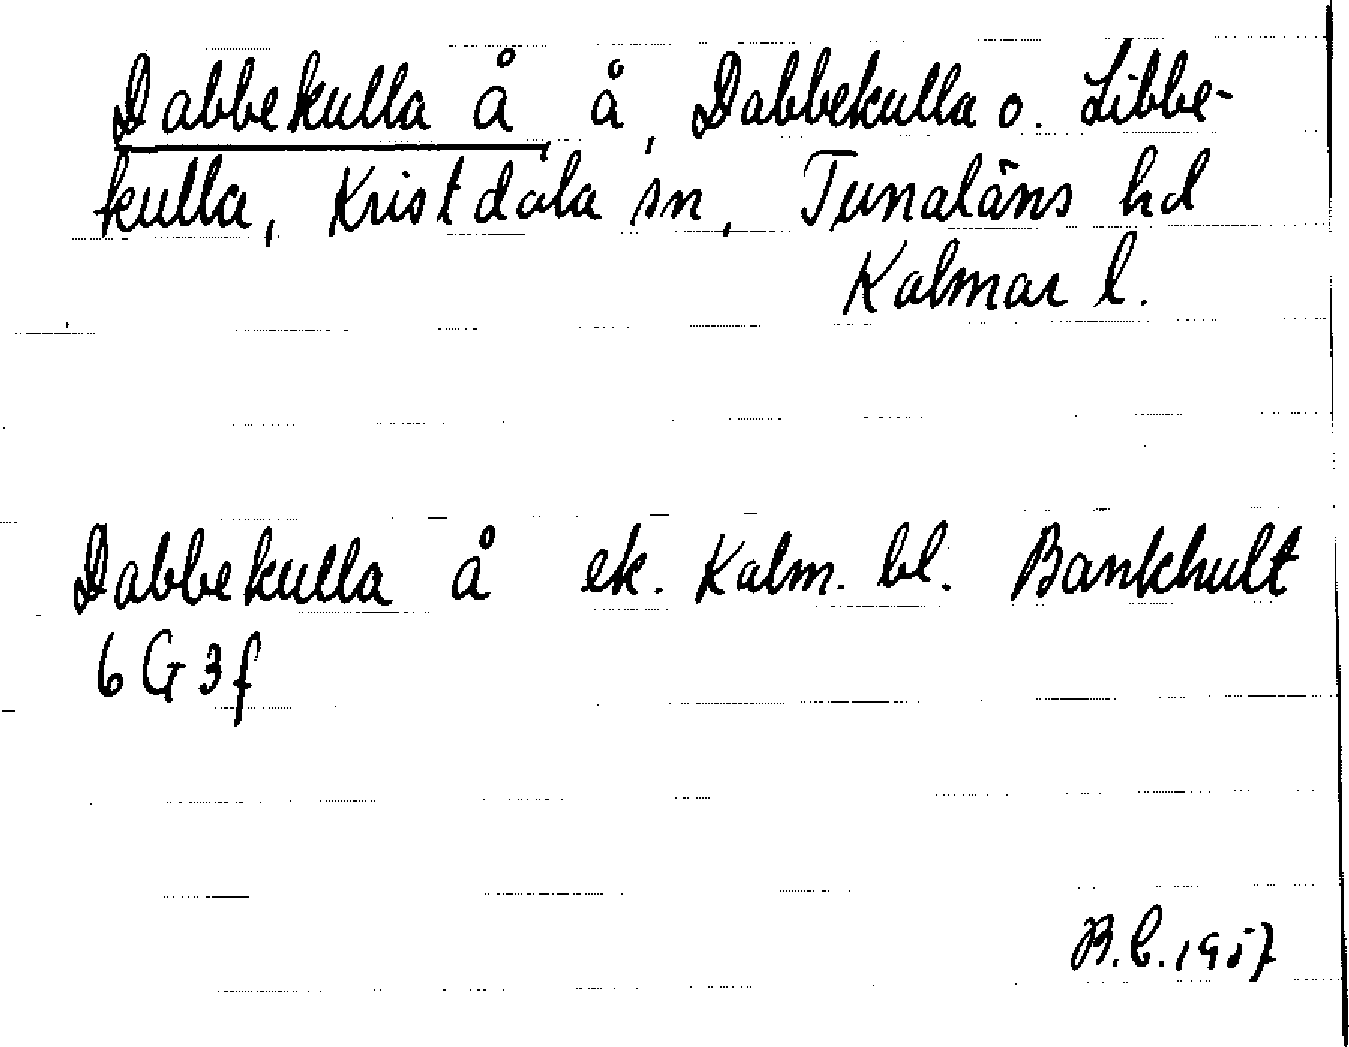 Dabbekulla å å, Dabbekulla o. Libbe-
kulla, Kristdala sn, Tunaläns hd
Kalmar l.
Dabbekulla å ek. Kalm. bl. Bankhult
6 G 3f
B.C. 1957